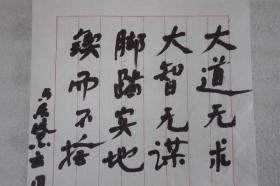 大道无求
大智无谋
脚踏实地
锲而不捨